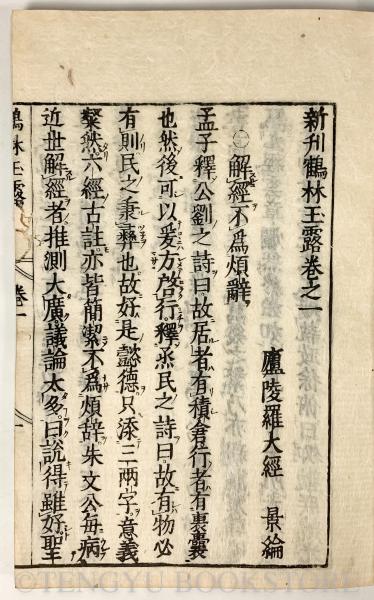 新刊鶴林玉露卷之一
廬陵羅大經 景綸
㊀解經不爲煩辭
孟子釋公劉之詩曰故居者有積倉行者有裹囊
也然後可以爰方啓行釋烝民之詩曰故有物必
有則民之秉彝也故好是懿德只添三兩字意義
粲然六經古註亦皆簡潔不爲煩辞朱文公毎病
近世解經者推測太廣議論太多曰説得雖好聖
鶴林玉露 卷一
©TENGYU BOOKSTORE